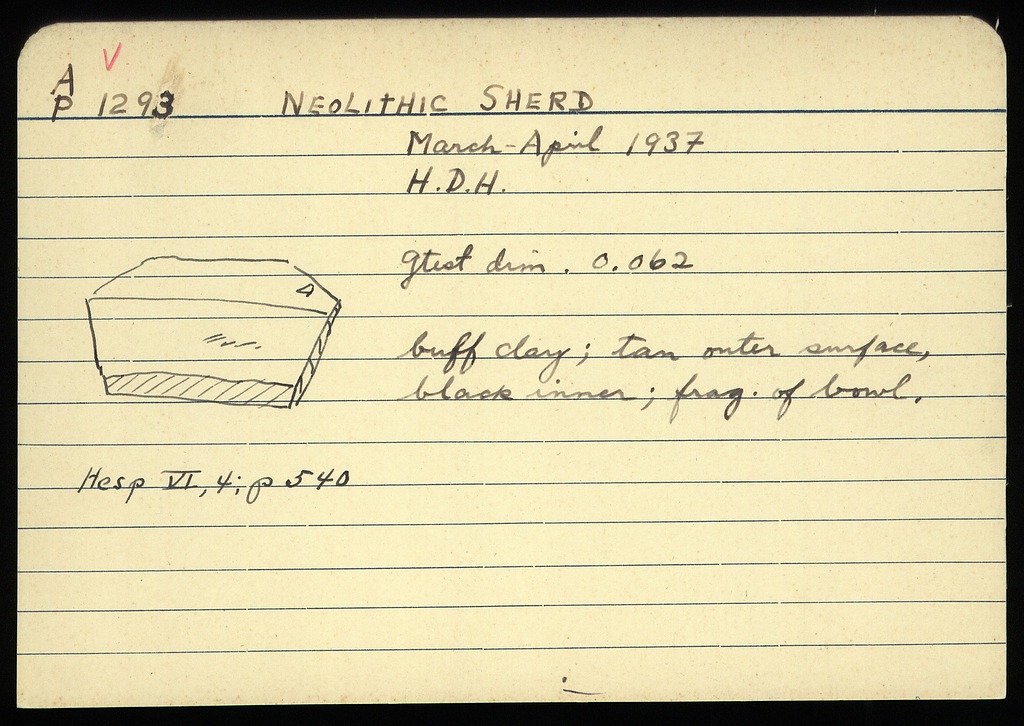 V
A
P 1293 NEOLITHIC SHERD
March-April 1937
H.D.H.
gtest dim. 0.062
buff clay; tan outer surface,
black inner; frag. of bowl.
Hesp VI, 4; p 540